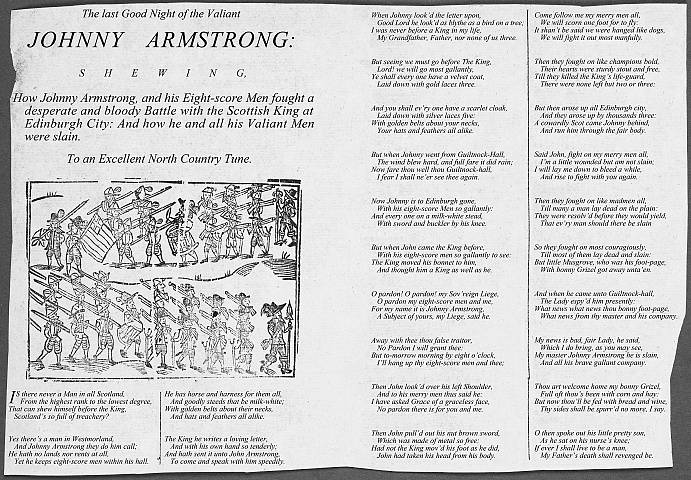 The last Good Night of the Valiant
JOHNNY ARMSTRONG:
SHEWING,
How Johnny Armstrong, and his Eight-score Men fought a
desperate and bloody Battle with the Scottish King at
Edinburgh City: And how he and all his Valiant Men
were slain.
To an Excellent North Country Tune.
IS there never a Man in all Scotland,
From the highest rank to the lowest degree,
That can shew himself before the King,
Scotland's so full of treachery?
Yes there's a man in Westmorland,
And Johnny Armstrong they do him call;
He hath no lands nor rents at all,
Yet he keeps eight-score men within his hall.
He has horse and harness for them all,
And goodly steeds that be milk-white;
With golden belts about their necks,
And hats and feathers all alike.
The King he writes a loving letter,
And with his own hand so tenderly;
And hath sent it unto John Armstrong,
To come and speak with him speedily.
When Johnny look'd the letter upon,
Good Lord he look'd as blythe as a bird on a tree;
I was never before a King in my life,
My Grandfather, Father, nor none of us three.
But seeing we must go before The King,
Lord! we will go most gallantly,
Ye shall every one have a velvet coat,
Laid down with gold laces three.
And you shall ev'ry one have a scarlet cloak,
Laid down with silver laces five:
With golden belts about your necks,
Your hats and feathers all alike.
But when Johnny went from Guiltnock-Hall,
The wind blew hard, and full fare it did rain;
Now fare thou well thou Guiltnock-hall,
I fear I shall ne'er see thee again.
Now Johnny is to Edinburgh gone,
With his eight-score Men so gallantly:
And every one on a milk-white stead,
With sword and buckler by his knee.
But when John came the King before,
With his eight-score men so gallantly to see:
The King moved his bonnet to him,
And thought him a King as well as he.
O pardon! O pardon! my Sov'reign Liege,
O pardon my eight-score men and me,
For my name it is Johnny Armstrong,
A Subject of yours, my Liege, said he.
Away with thee thou false traitor,
No Pardon I will grant thee:
But to-morrow morning by eight o'clock,
I'll hang up thy eight-score men and thee;
Then John look'd over his left Shoulder,
And to his merry men thus said he:
I have asked Grace of a graceless face,
No pardon there is for you and me.
Then John pull'd out his nut brown sword,
Which was made of metal so free:
Had not the King mov'd his foot as he did,
John had taken his head from his body.
Come follow me my merry men all,
We will scorn one foot for to fly:
It shan't be said we were hanged like dogs,
We will fight it out most manfully.
Then they fought on like champions bold,
Their hearts were sturdy stout and free,
Till they killed the King's life-guard,
There were none left but two or three:
But then arose up all Edinburgh city,
And they arose up by thousands three:
A cowardly Scot came Johnny behind,
And run him through the fair body.
Said John, fight on my merry men all,
I'm a little wounded but am not slain;
I will lay me down to bleed a while,
And rise to fight with you again.
Then they fought on like madmen all,
Till many a man lay dead on the plain:
They were resolv'd before they would yield,
That ev'ry man should there be slain
So they fought on most couragiously,
Till most of them lay dead and slain:
But little Musgrove, who was his foot-page,
With bonny Grizel got away unta'en.
And when he came unto Guiltnock-hall,
The Lady espy'd him presently:
What news what news thou bonny foot-page,
What news from thy master and his company.
My news is bad, fair Lady, he said,
Which I do bring, as you may see,
My master Johnny Armstrong he is slain,
And all his brave gallant company.
Thou art welcome home my bonny Grizel,
Full oft thou's been with corn and hay:
But now thou'll be fed with bread and wine,
Thy sides shall be spurr'd no more, I say.
O then spoke out his little pretty son,
As he sat on his nurse's knee;
If ever I shall live to be a man,
My Father's death shall revenged be.